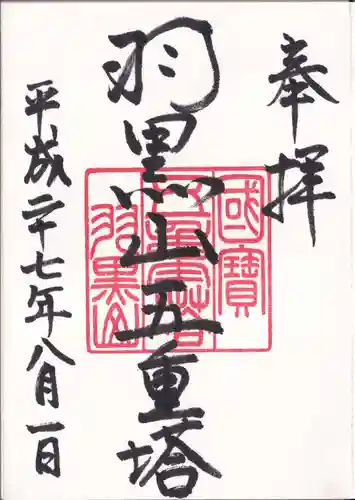 奉拝
羽黒山五重塔
平成二十七年八月一日
國寶
五重塔
羽黒山